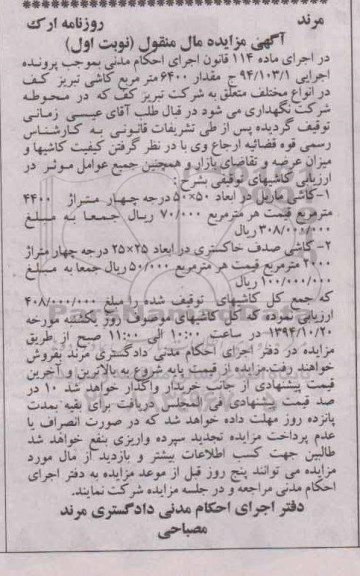 مرند روزنامه ارک
آگهی مزایده مال منقول (نوبت اول)
در اجرای ماده ۱۱۴ قانون اجرای احکام مدنی بموجب پرونده
اجرایی ۹۴/۱۰۳/۱ ج مقدار ۶۴۰۰ متر مربع کاشی تبریز کف
در انواع مختلف متعلق به شرکت تبریز کف که در محوطه
شرکت نگهداری می شود در قبال طلب آقای عیسی زمانی
توقیف گردیده پس از طی تشریفات قانونی به کارشناس
رسمی قوه قضائیه ارجاع وی با در نظر گرفتن کیفیت کاشیها و
میزان عرضه و تقاضای بازار و همچنین جمیع عوامل موثر در
ارزیابی کاشیهای توقیفی بشرح:
۱-کاشی ماربل در ابعاد ۵۰×۵۰ درجه چهار متراژ ۴۴۰۰
مترمربع قیمت هر مترمربع ۷۰/۰۰۰ ریال جمعا به مبلغ
۳۰۸/۰۰۰/۰۰۰ ریال
۲- کاشی صدف خاکستری در ابعاد ۲۵×۲۵ درجه چهار متراژ
۲۰۰۰ مترمربع قیمت هر مترمربع ۵۰/۰۰۰ ریال جمعا به مبلغ
۱۰۰/۰۰۰/۰۰۰ ریال
که جمع کل کاشیهای توقیف شده را مبلغ ۴۰۸/۰۰۰/۰۰۰
ارزیابی نموده که کل کاشیهای موصوف روز یکشنبه مورخه
۱۳۹۴/۱۰/۲۰ در ساعت ۱۰:۰۰ الی ۱۱:۰۰ صبح از طریق
مزایده در دفتر اجرای احکام مدنی دادگستری مرند بفروش
خواهند رفت.مزایده از قیمت پایه شروع به بالاترین و آخرین
قیمت پیشنهادی از جانب خریدار واگذار خواهد شد ۱۰ در
صد قیمت پیشنهادی فی المجلس دریافت برای بقیه بمدت
پانزده روز مهلت داده خواهد شد که در صورت انصراف یا
عدم پرداخت مزایده تجدید سپرده واریزی بنفع خواهد شد
طالبین جهت کسب اطلاعات بیشتر و بازدید از مال مورد
مزایده می توانند پنج روز قبل از موعد مزایده به دفتر اجرای
احکام مدنی مراجعه و در جلسه مزایده شرکت نمایند.
دفتر اجرای احکام مدنی دادگستری مرند
مصباحی